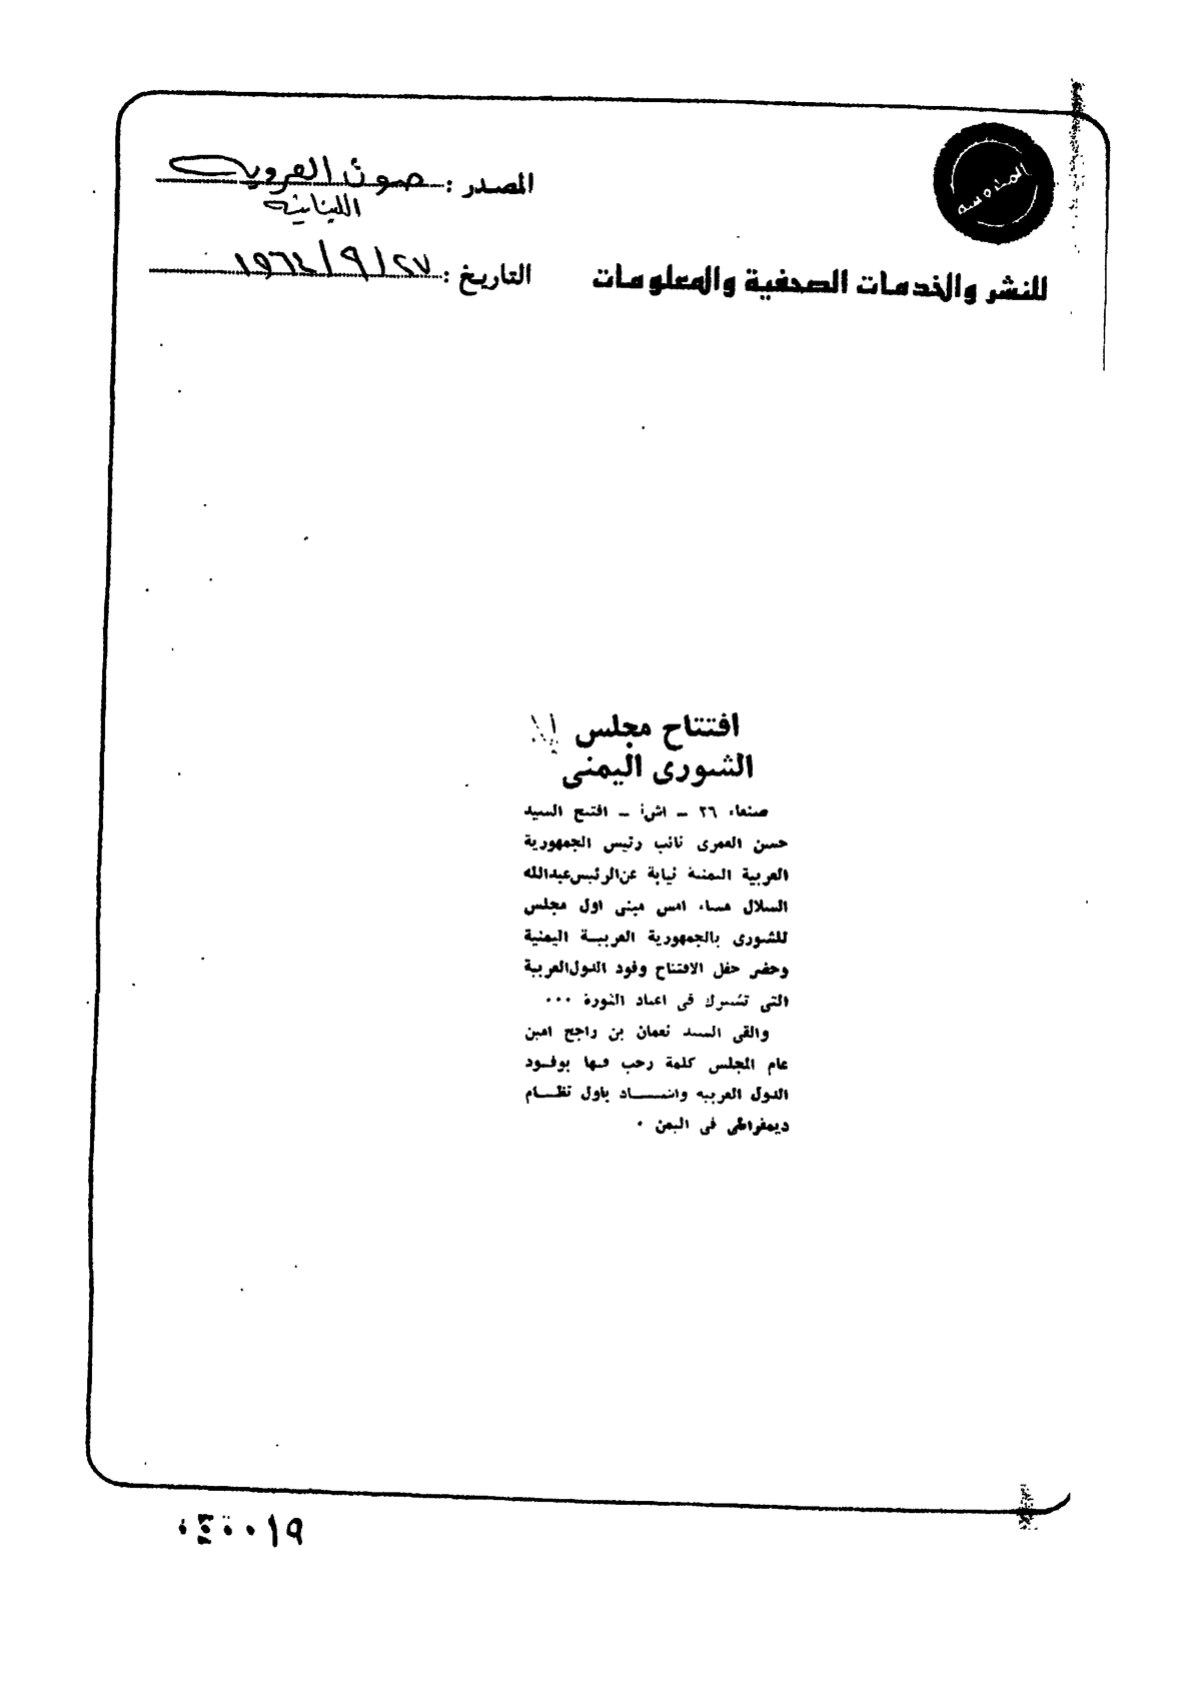 المصدر : صوت العروبة
اللبنانيه
للنشر والخدمات الصحفية والمعلومات
التاريخ : ٢٧ / ٩ / ١٩٦٤
افتتاح مجلس
الشورى اليمنى
صنعاء ٢٦ - اشا - افتتح السيد
حسن العمرى نائب رئيس الجمهورية
العربية اليمنية نيابة عن الرئيس عبدالله
السلال مساء امس مبنى اول مجلس
للشورى بالجمهورية العربيـة اليمنية
وحضر حفل الافتتاح وفود الدول العربية
التى تشترك فى اعياد الثورة ٠٠٠
والقى السيد نعمان بن راجح امين
عام المجلس كلمة رحب فيها بوفـود
الدول العربيه واشـــاد باول نظـام
ديمقراطى فى اليمن ٠